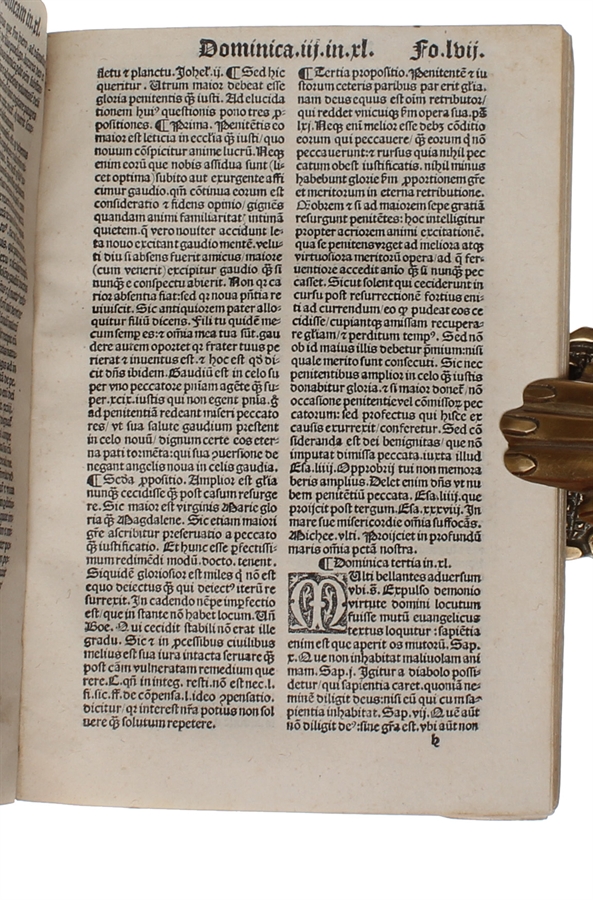 Dominica.iij.in.xl. Fo.lvij.
fletu et planctu. Johel.ij. ¶ Sed hic
queritur. Utrum maior debeat esse
gloria penitentis qȝ iusti. Ad elucida
tionem huiꝰ questionis pono tres ꝓ-
positiones. ¶ Prima. Penitẽtis eo
maior est leticia in ecclĩa qȝ iusti/ quo
nouum cõspicitur anime lucrũ. Neqȝ
enim eorũ que nobis assidua sunt (li-
cet optima) subito aut exurgente affi
cimur gaudio. qm̃ cõtinua eorum est
consideratio ⁊ fidens opinio/ gignẽs
quandam animi familiaritatẽ intimã
quietem. q̃ vero nouiter accidunt le-
ta nouo excitant gaudio mentẽ. velu-
ti diu si absens fuerit amicus/ maiore
(cum venerit) excipitur gaudio qȝ si
nunqȝ e conspectu abierit. Non qr ca
rior absentia fiat: sed qr noua p̃ntia re
uiuiscit. Sic antiquiorem pater allo-
quitur filiũ dicens. Fili tu quidẽ me-
cum semp̱ es: ⁊ om̃ia mea tua sũt. gau
dere autem oportet qr frater tuus pe
rierat ⁊ inuentus est. ⁊ hoc est qd̃ di-
cit dñs ibidem. Gaudiũ est in celo su
per vno peccatore pñiam agẽte qȝ su-
per .xcix. iustis qui non egent pñia. q̃
ad penitentiã redeant miseri peccato
res/ vt sua salute gaudium prestent
in celo nouũ/ dignum certe eos eter-
na pati tormẽta: qui sua ꝓuersione de
negant angelis noua in celis gaudia.
¶ Scďa ꝓpositio. Amplior est gl̃ia
nunqȝ cecidisse qȝ post casum resurge
re. Sic maior est virginis Marie glo
ria qȝ Magdalene. Sic etiam maiori
gr̃e ascribitur preseruatio a peccato
qȝ iustificatio. Et hunc esse ꝑfectissi-
mum redimẽdi modũ. docto. tenent.
Siquidẽ gloriosior est miles q̃ nõ est
equo deiectus qȝ qui deiectꝰ iterũ re
surrexit. In cadendo nẽpe imꝑfectio
est/ que in stante nõ habet locum. Uñ
Boe. Qui cecidit stabili nõ erat ille
gradu. Sic ⁊ in ꝓcessibus ciuilibus
melius est sua iura intacta seruare qȝ
post cãm vulneratam remedium que
rere. C. qñ in integ. resti. nõ est nec. l.
fi. sic. ff. de cõpensa. l. ideo ꝓpensatio.
dicitur/ qr interest nr̃a potius non sol
uere qȝ solutum repetere.
¶ Tertia propositio. Penitentẽ ⁊ iu
storum ceteris paribus par erit gl̃ia.
nam deus equus est oĩm retributor/
qui reddet vnicuiqȝ ẜm opera sua. ps̃
lxj. Neqȝ eni melior esse debȝ cõditio
eorum qui peccauere/ qȝ eorum q̃ nõ
peccauerunt: ⁊ rursus quia nihil pec
catum obest iustificatis. nihil minus
habebunt glorie ẜm ꝓportionẽ gr̃e
et meritorum in eterna retributione.
Qobrem ⁊ si ad maiorem sepe gratiã
resurgunt penitẽtes: hoc intelligitur
propter acriorem animi excitationẽ.
qua se penitens vrget ad meliora atqȝ
virtuosiora meritorũ opera/ ad q̃ fer-
uentiore accedit anĩo qȝ si nunqȝ pec
casset. Sicut solent qui ceciderunt in
cursu post resurrectionẽ fortius eni-
ti ad currendum/ eo qꝫ pudeat eos ce
cidisse/ cupiantqȝ amissam recupera-
re gl̃iam/ ⁊ perditum tempꝰ. Sed nõ
ob id maius illis debetur p̃mium: nisi
quale merito sunt consecuti. Sic nec
penitentibus amplior in celo qȝ iustis
donabitur gloria. ⁊ si maior donef/ nõ
occasione penitentie vel cõmissoꝝ pec
catorum: sed profectus qui hisce ex
causis exurrexit/ conferetur. Sed cõ
sideranda est dei benignitas/ que nõ
imputat dimissa peccata. iuxta illud.
Esa. liiij. Opprobrij tui non memora
beris amplius. Delet enim dñs vt nu
bem penitẽtiũ peccata. Esa. liiij. que
proijcit post tergum. Esa. xxxviij. In
mare sue misericordie om̃ia suffocãs.
Michee. vlti. Proijciet in profundũ
maris om̃ia pctã nostra.
¶ Dominica tertia in.xl.
MUlti bellantes aduersum
vbi. §. Expulso demonio
virtute domini locutum
fuisse mutũ euangelicus
textus loquitur: sapiẽtia
enim est que aperit os mutorũ. Sap.
x. Que non inhabitat maliuolam ani
mam. Sap. j. Igitur a diabolo possi-
detur/ qui sapientia caret. quoniã ne-
minẽ diligit deus: nisi eũ qui cum sa-
pientia inhabitat. Sap. vij. Quẽ aũt
nõ diligit deꝰ: sine gr̃a est. vbi aũt non
h